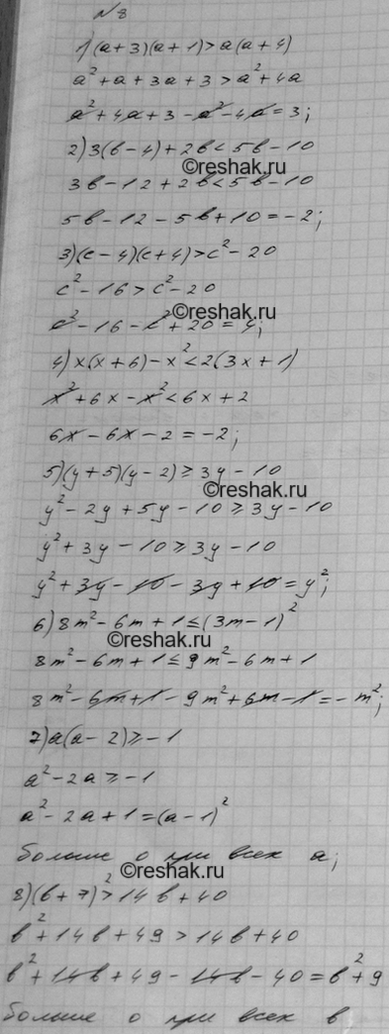 №8
1) (a+3)(a+1)>a(a+4)
a²+a+3a+3>a²+4a
a²+4a+3-a²-4a=3;
2) 3(b-4)+2b<5b-10
©reshak.ru
3b-12+2b<5b-10
5b-12-5b+10=-2;
3) (c-4)(c+4)>c²-20
c²-16>c²-20
©reshak.ru
c²-16-c²+20=4;
4) x(x+6)-x²<2(3x+1)
x²+6x-x²<6x+2
6x-6x-2=-2;
5) (y+5)(y-2)≥3y-10
©reshak.ru
y²-2y+5y-10≥3y-10
y²+3y-10≥3y-10
y²+3y-10-3y+10=y²;
6) 8m²-6m+1≤(3m-1)²
©reshak.ru
8m²-6m+1≤9m²-6m+1
8m²-6m+1-9m²+6m-1=-m²;
7) a(a-2)≥-1
a²-2a≥-1
a²-2a+1=(a-1)²
больше 0 при всех a;
©reshak.ru
8) (b+7)²>14b+40
b²+14b+49>14b+40
b²+14b+49-14b-40=b²+9
©reshak.ru
больше 0 при всех b